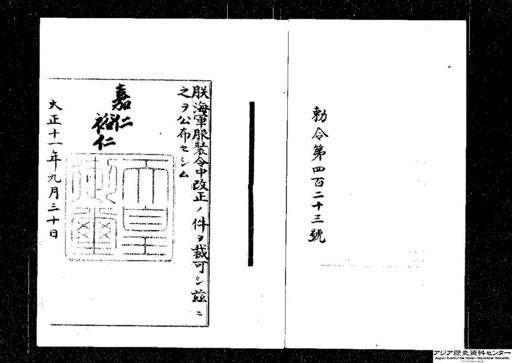 勅令第四百二十三號
朕海軍服裝令中改正ノ件ヲ裁可シ茲ニ
之ヲ公布セシム
嘉仁
裕仁
天皇
御璽
大正十一年九月三十日
アジア歴史資料センター
Japan Center for Asian Historical Records